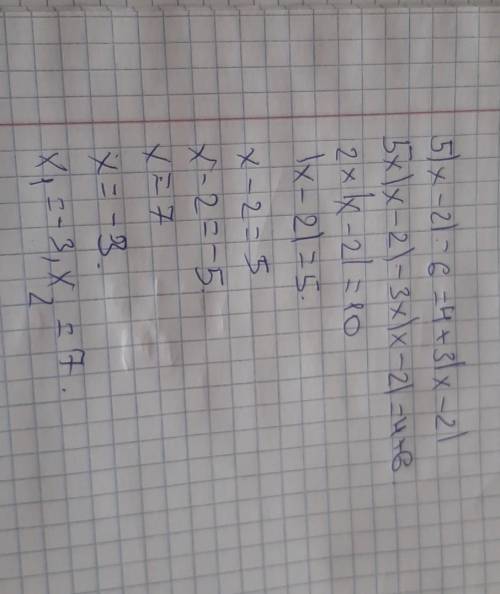 5|x-2|-6=4+3|x-2|
5x|x-2|-3x|x-2|=4+6
2x|x-2|=10
|x-2|=5.
x-2=5
x-2=-5.
x=7
x=-3.
x₁=-3, x₂=7.